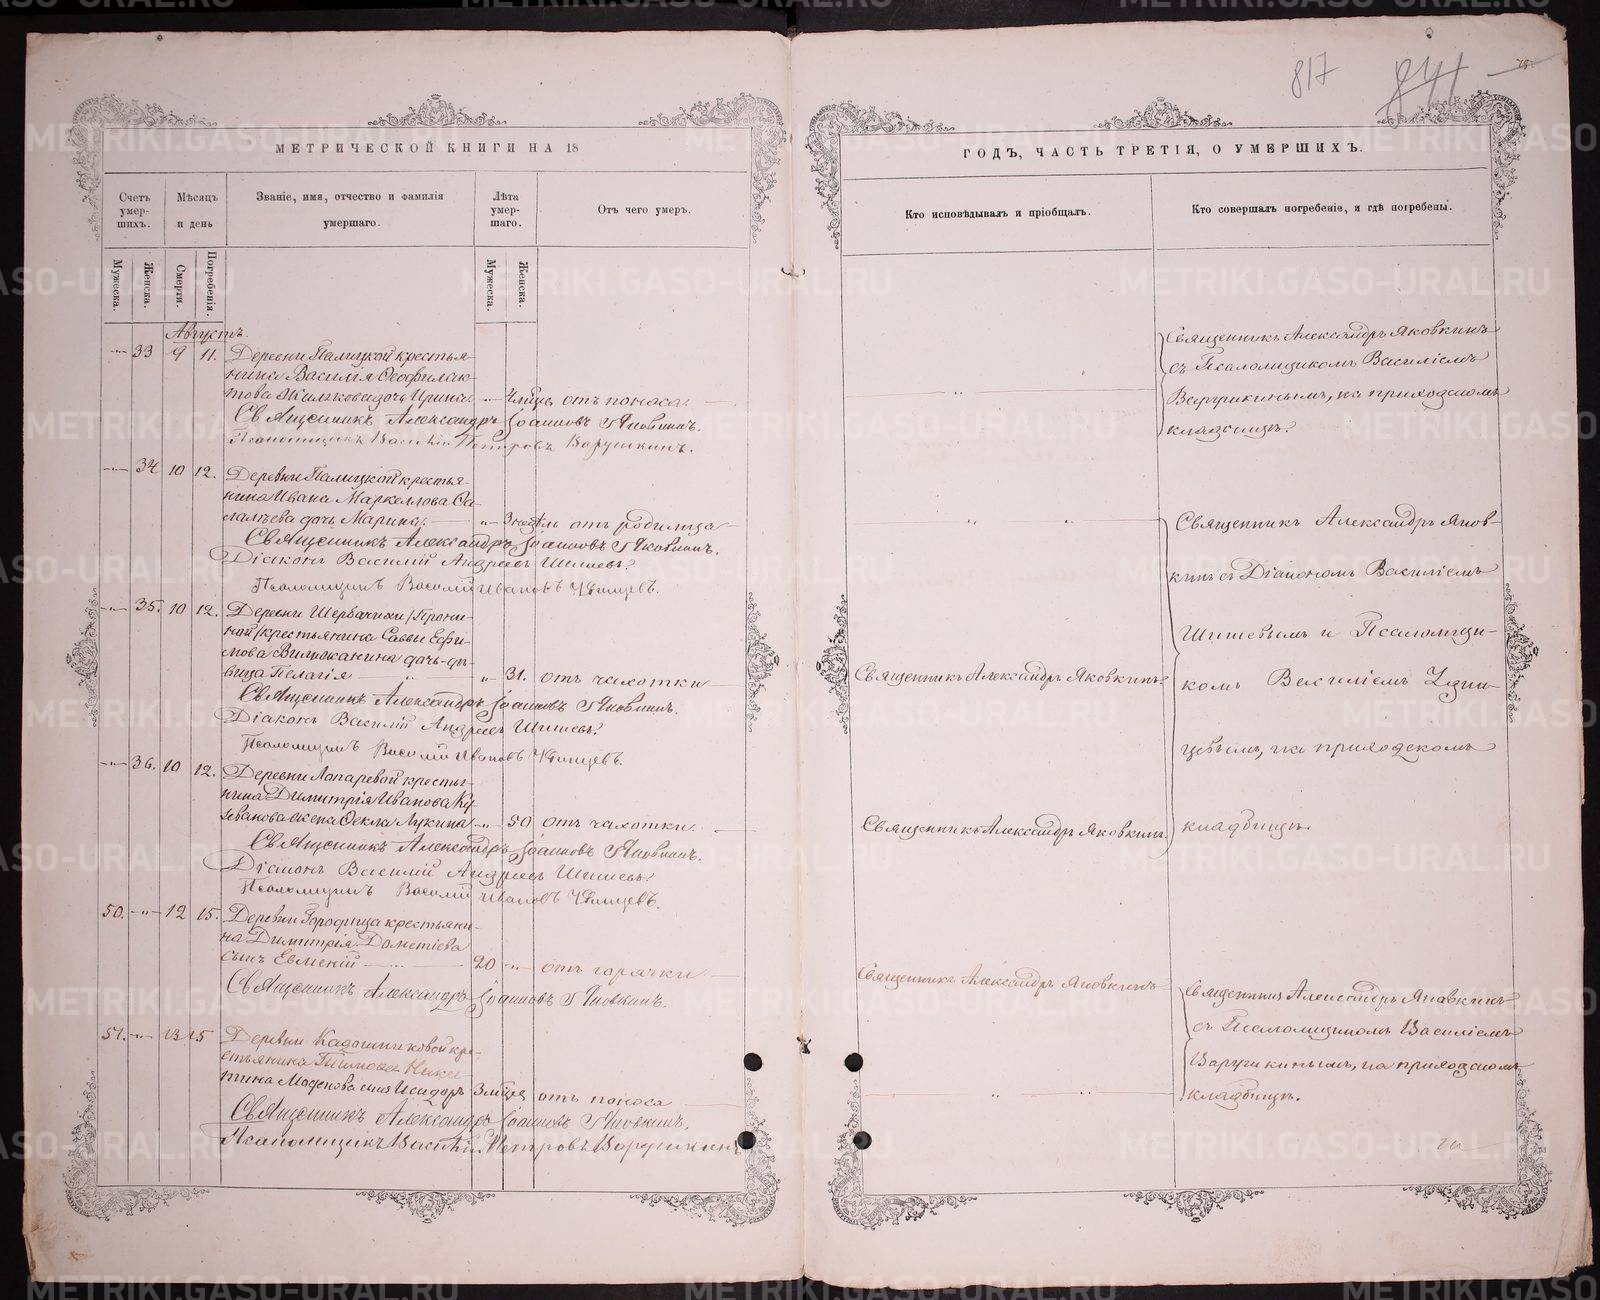 817
841
МЕТРИЧЕСКОЙ КНИГИ НА 18
ГОДЪ, ЧАСТЬ ТРЕТІЯ, О УМЕРШИХЪ.
Счетъ умер-шихъ.
Мѣсяцъ и день
Званіе, имя, отчество и фамилія умершаго.
Лѣта умер-шаго.
Отъ чего умеръ.
Кто исповѣдывалъ и пріобщалъ.
Кто совершалъ погребеніе, и гдѣ погребены.
Мужеска.
Женска.
Смерти.
Погребенія.
Мужеска.
Женска.
Августъ.
33 9 11. Деревни Палицкой крестья-
нина Василія Ѳеофилак-
това дочь Ирина отъ поноса.
Священникъ Александръ Іоанновъ Яковкинъ.
Псаломщикъ Василій Петровъ Варушкинъ.
Священникъ Александръ Яковкинъ
съ Псаломщикомъ Василіемъ
Варушкинымъ, на приходскомъ
кладбищѣ.
34 10 12. Деревни Палицкой крестья-
нина Ивана Маркеллова
дочь Марина. 3 недѣль отъ родимца
Священникъ Александръ Іоанновъ Яковкинъ.
Діаконъ Василій Андреевъ Шишевъ.
Псаломщикъ Василій Ивановъ
35. 10 12. Деревни
крестьянина Саввы Ефи-
мова дочь-дѣ-
вица Пелагія 31. отъ чахотки
Священникъ Александръ Іоанновъ Яковкинъ.
Діаконъ Василій Андреевъ Шишевъ.
Псаломщикъ Василій Ивановъ
Священникъ Александръ Яковкинъ
36. 10 12. Деревни Лопаревой крестья-
нина Димитрія Иванова
жена Ѳекла Лукина 50 отъ чахотки.
Священникъ Александръ Іоанновъ Яковкинъ.
Діаконъ Василій Андреевъ Шишевъ.
Псаломщикъ Василій Ивановъ
Священникъ Александръ Яковкинъ
Священникъ Александръ Яков-
кинъ съ Діакономъ Василіемъ
Шишевымъ и Псаломщи-
комъ Василіемъ
на приходскомъ
кладбищѣ.
50. 12 15. Деревни Городища крестьяни-
на Димитрія Дометіева
сынъ Евмений 20 отъ горячки
Священникъ Александръ Іоанновъ Яковкинъ.
Священникъ Александръ Яковкинъ
51. 13 15 Деревни Кадошниковой кре-
стьянина
сынъ Исидоръ отъ поноса
Священникъ Александръ Іоанновъ Яковкинъ.
Псаломщикъ Василій Петровъ Варушкинъ
Священникъ Александръ Яковкинъ
съ Псаломщикомъ Василіемъ
Варушкинымъ, на приходскомъ
кладбищѣ.
METRIKI.GASO-URAL.RU